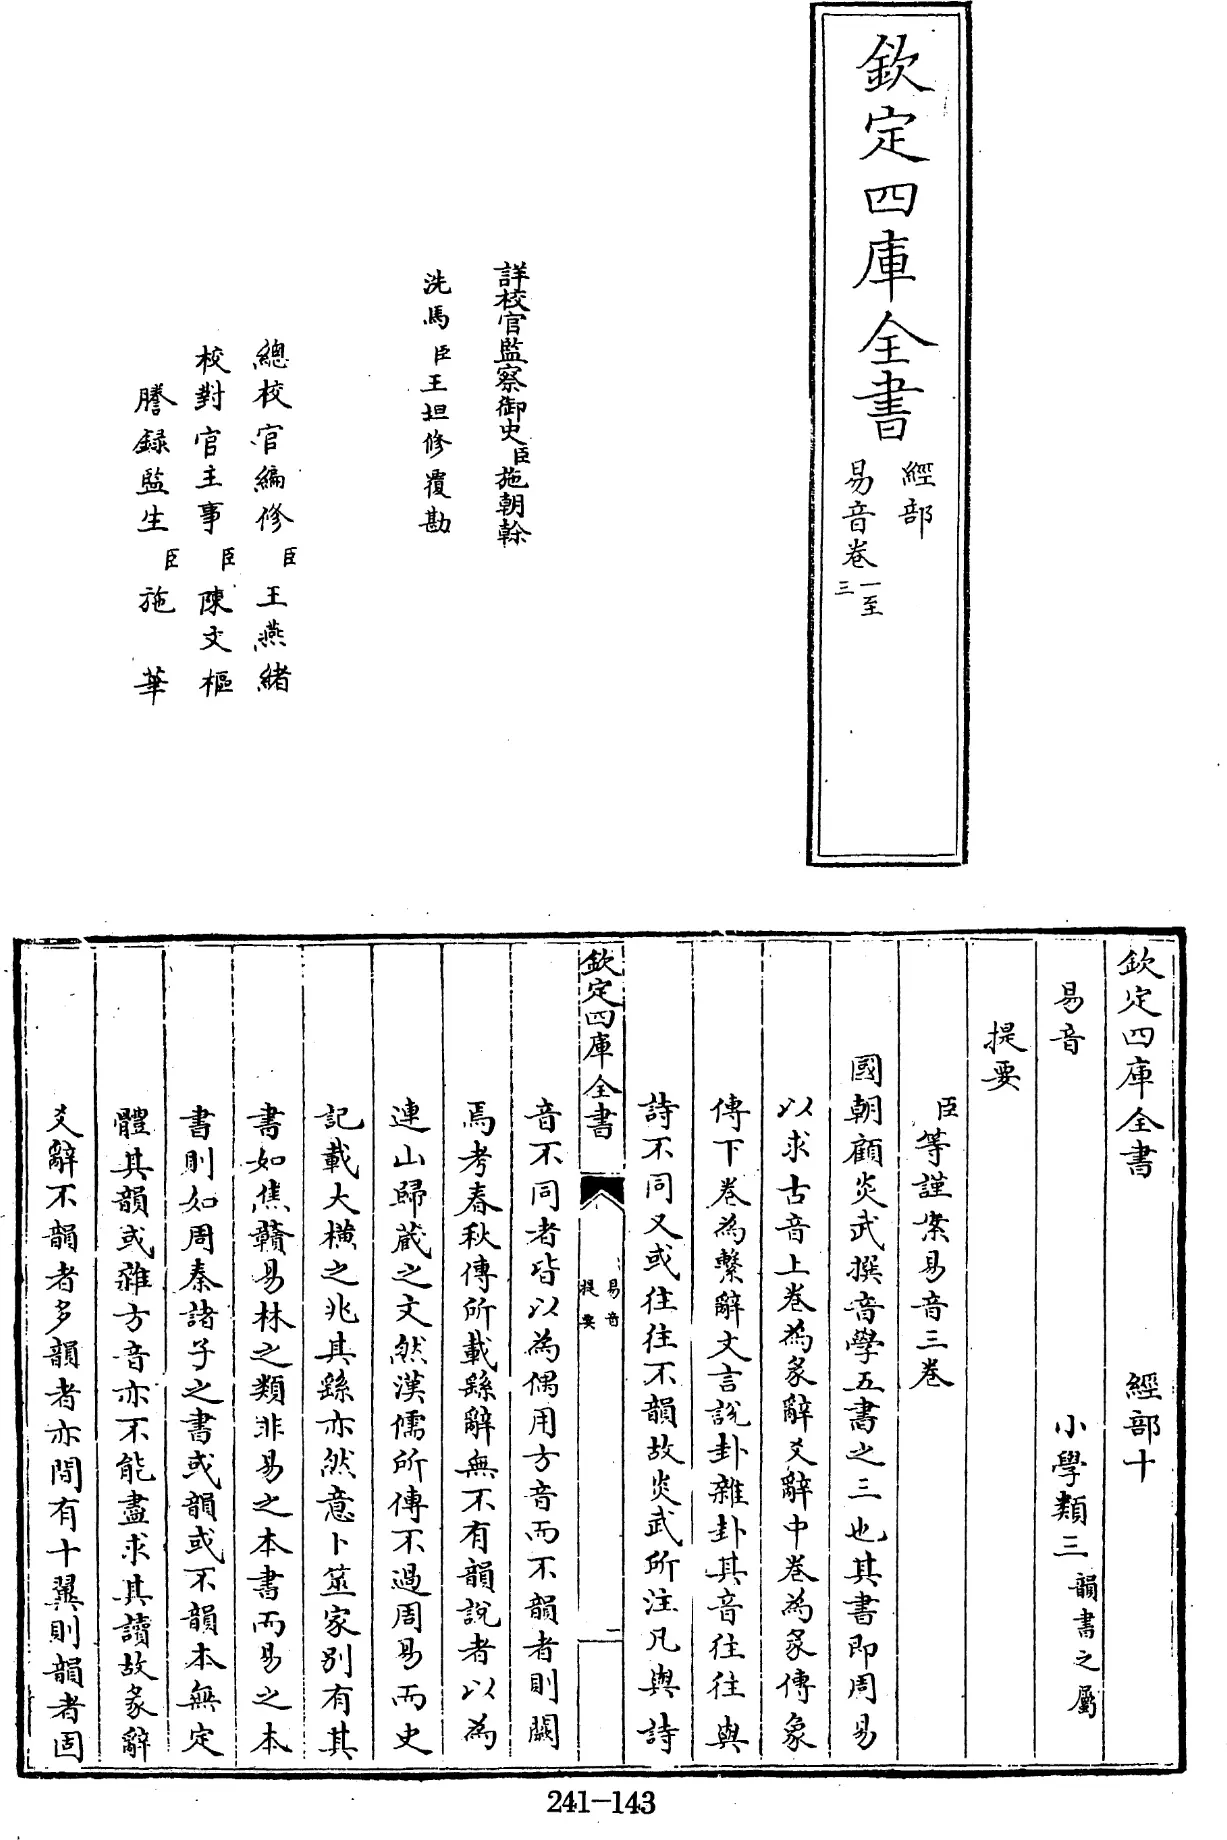 欽定四庫全書
經部
易音卷
一至
三
詳校官監察御史臣施朝榦
洗馬臣王坦修覆勘
總校官編修臣王燕緒
校對官主事臣陳文樞
謄錄監生臣施華
欽定四庫全書 經部十
易音 小學類三韻書之屬
提要
臣等謹案易音三卷
國朝顧炎武撰音學五書之三也其書即周易
以求古音上卷為彖辭爻辭中卷為彖傳象
傳下卷為繫辭文言說卦雜卦其音往往與
詩不同又或往往不韻故炎武所注凡與詩
欽定四庫全書
易音
提要
二
音不同者皆以為偶用方音而不韻者則闕
焉考春秋傳所載繇辭無不有韻說者以為
連山歸藏之文然漢儒所傳不過周易而史
記載大橫之兆其繇亦然意卜筮家别有其
書如焦贛易林之類非易之本書而易之本
書則如周秦諸子之書或韻或不韻本無定
體其韻或雜方音亦不能盡求其讀故彖辭
爻辭不韻者多韻者亦間有十翼則韻者固
241-143